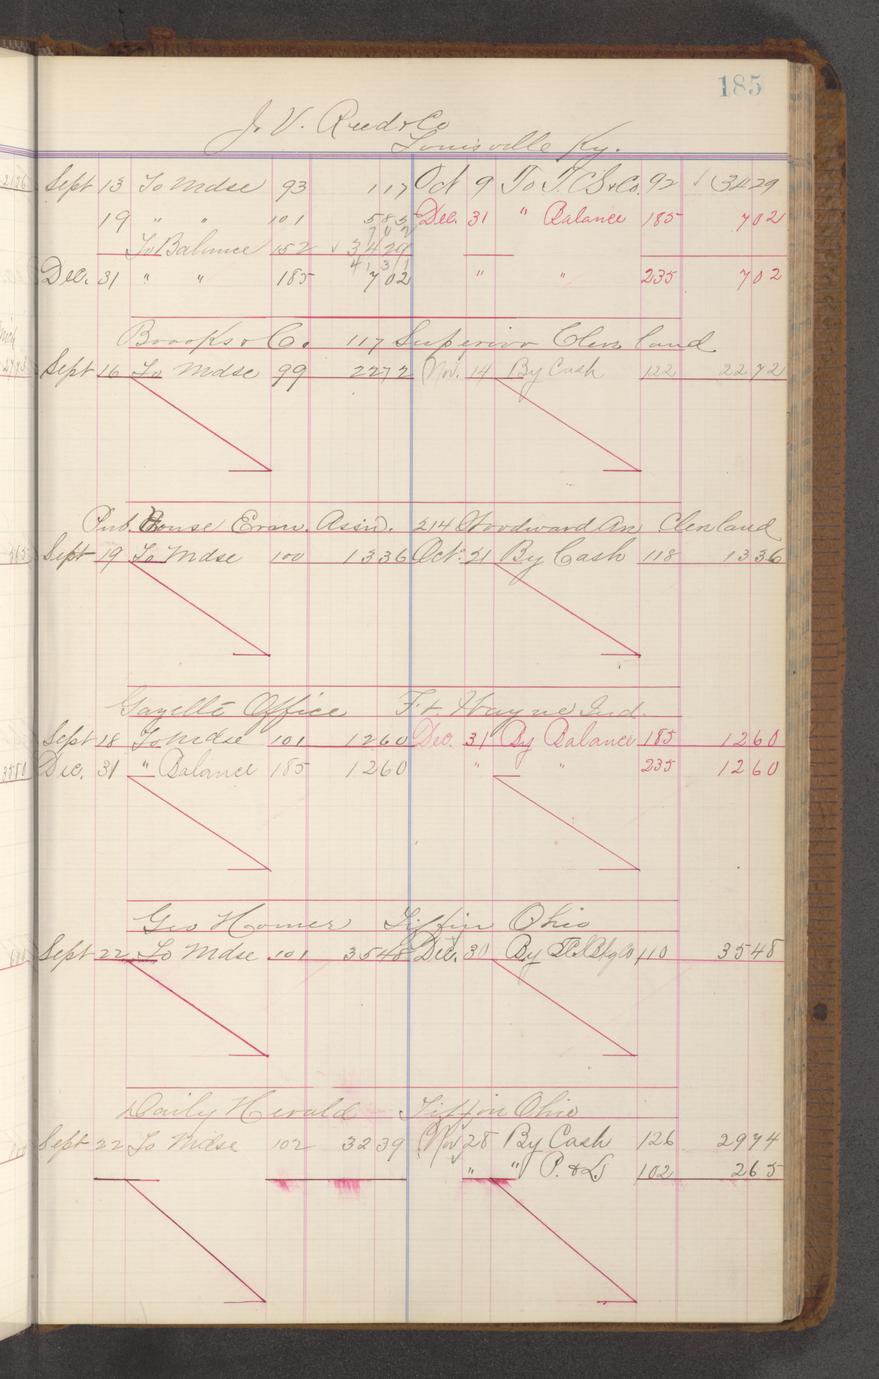 185
J. V. Reed & Co
Louisville Ky.
Sept 13 To Mdse 93 117 Oct 9 To T. C. S. & Co. 92 3429
19 " " 101 585 Dec. 31 " Balance 185 702
702
To Balance 152 √ 3429 " " 235 702
4131
Dec. 31 " " 185 702
Brooks & Co. 117 Superior Cleveland
Sept 16 To Mdse 99 2272 Nov. 14 By Cash 122 2272
Pub. House Evan. Assn. 214 Woodward Av Cleveland
Sept 19 To Mdse 100 1336 Oct. 21 By Cash 118 1336
Gazette Office Ft. Wayne Ind.
Sept 18 To Mdse 101 1260 Dec. 31 By Balance 185 1260
Dec. 31 " Balance 185 1260 " " 235 1260
Geo Homer Tiffin Ohio
Sept 22 To Mdse 101 3548 Dec. 30 By 110 3548
Daily Herald Tiffin Ohio
Sept 22 To Mdse 102 3239 Nov 28 By Cash 126 2974
" " P. & L. 102 265